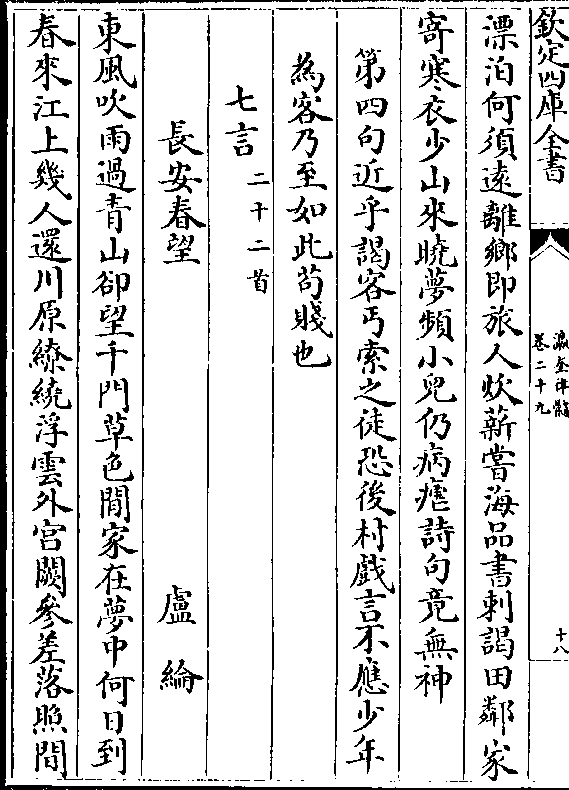 欽定四庫全書
瀛奎律髓
卷二十九
十八
漂泊何須遠離鄉即旅人炊薪嘗海品書刺謁田鄰家
寄寒衣少山來曉夢頻小兒仍病瘧詩句竟無神
第四句近乎謁客丐索之徒恐後村戲言不應少年
為客乃至如此苟賤也
七言二十二首
長安春望　盧綸
東風吹雨過青山卻望千門草色閒家在夢中何日到
春來江上幾人還川原繚繞浮雲外宮闕參差落照間